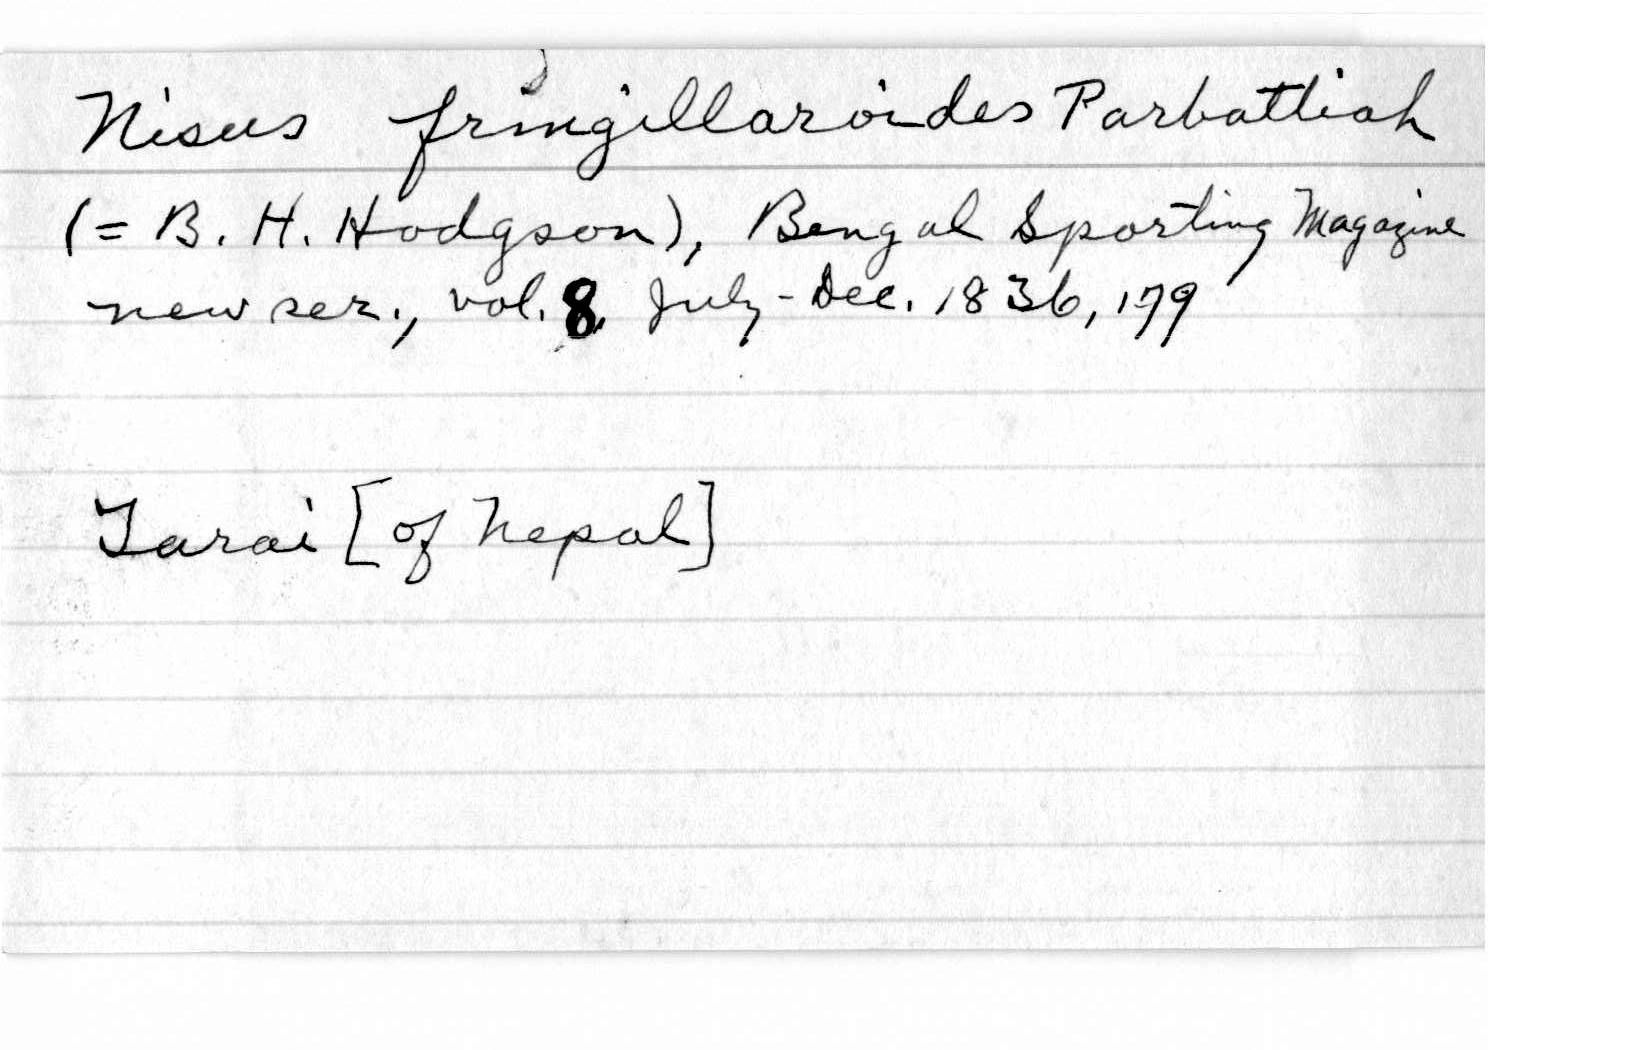 Nisus fringillaroides Parbattiah
(= B. H. Hodgson), Bengal Sporting Magazine
new ser., vol. 8, July - Dec. 1836, 179
Tarai [of Nepal]